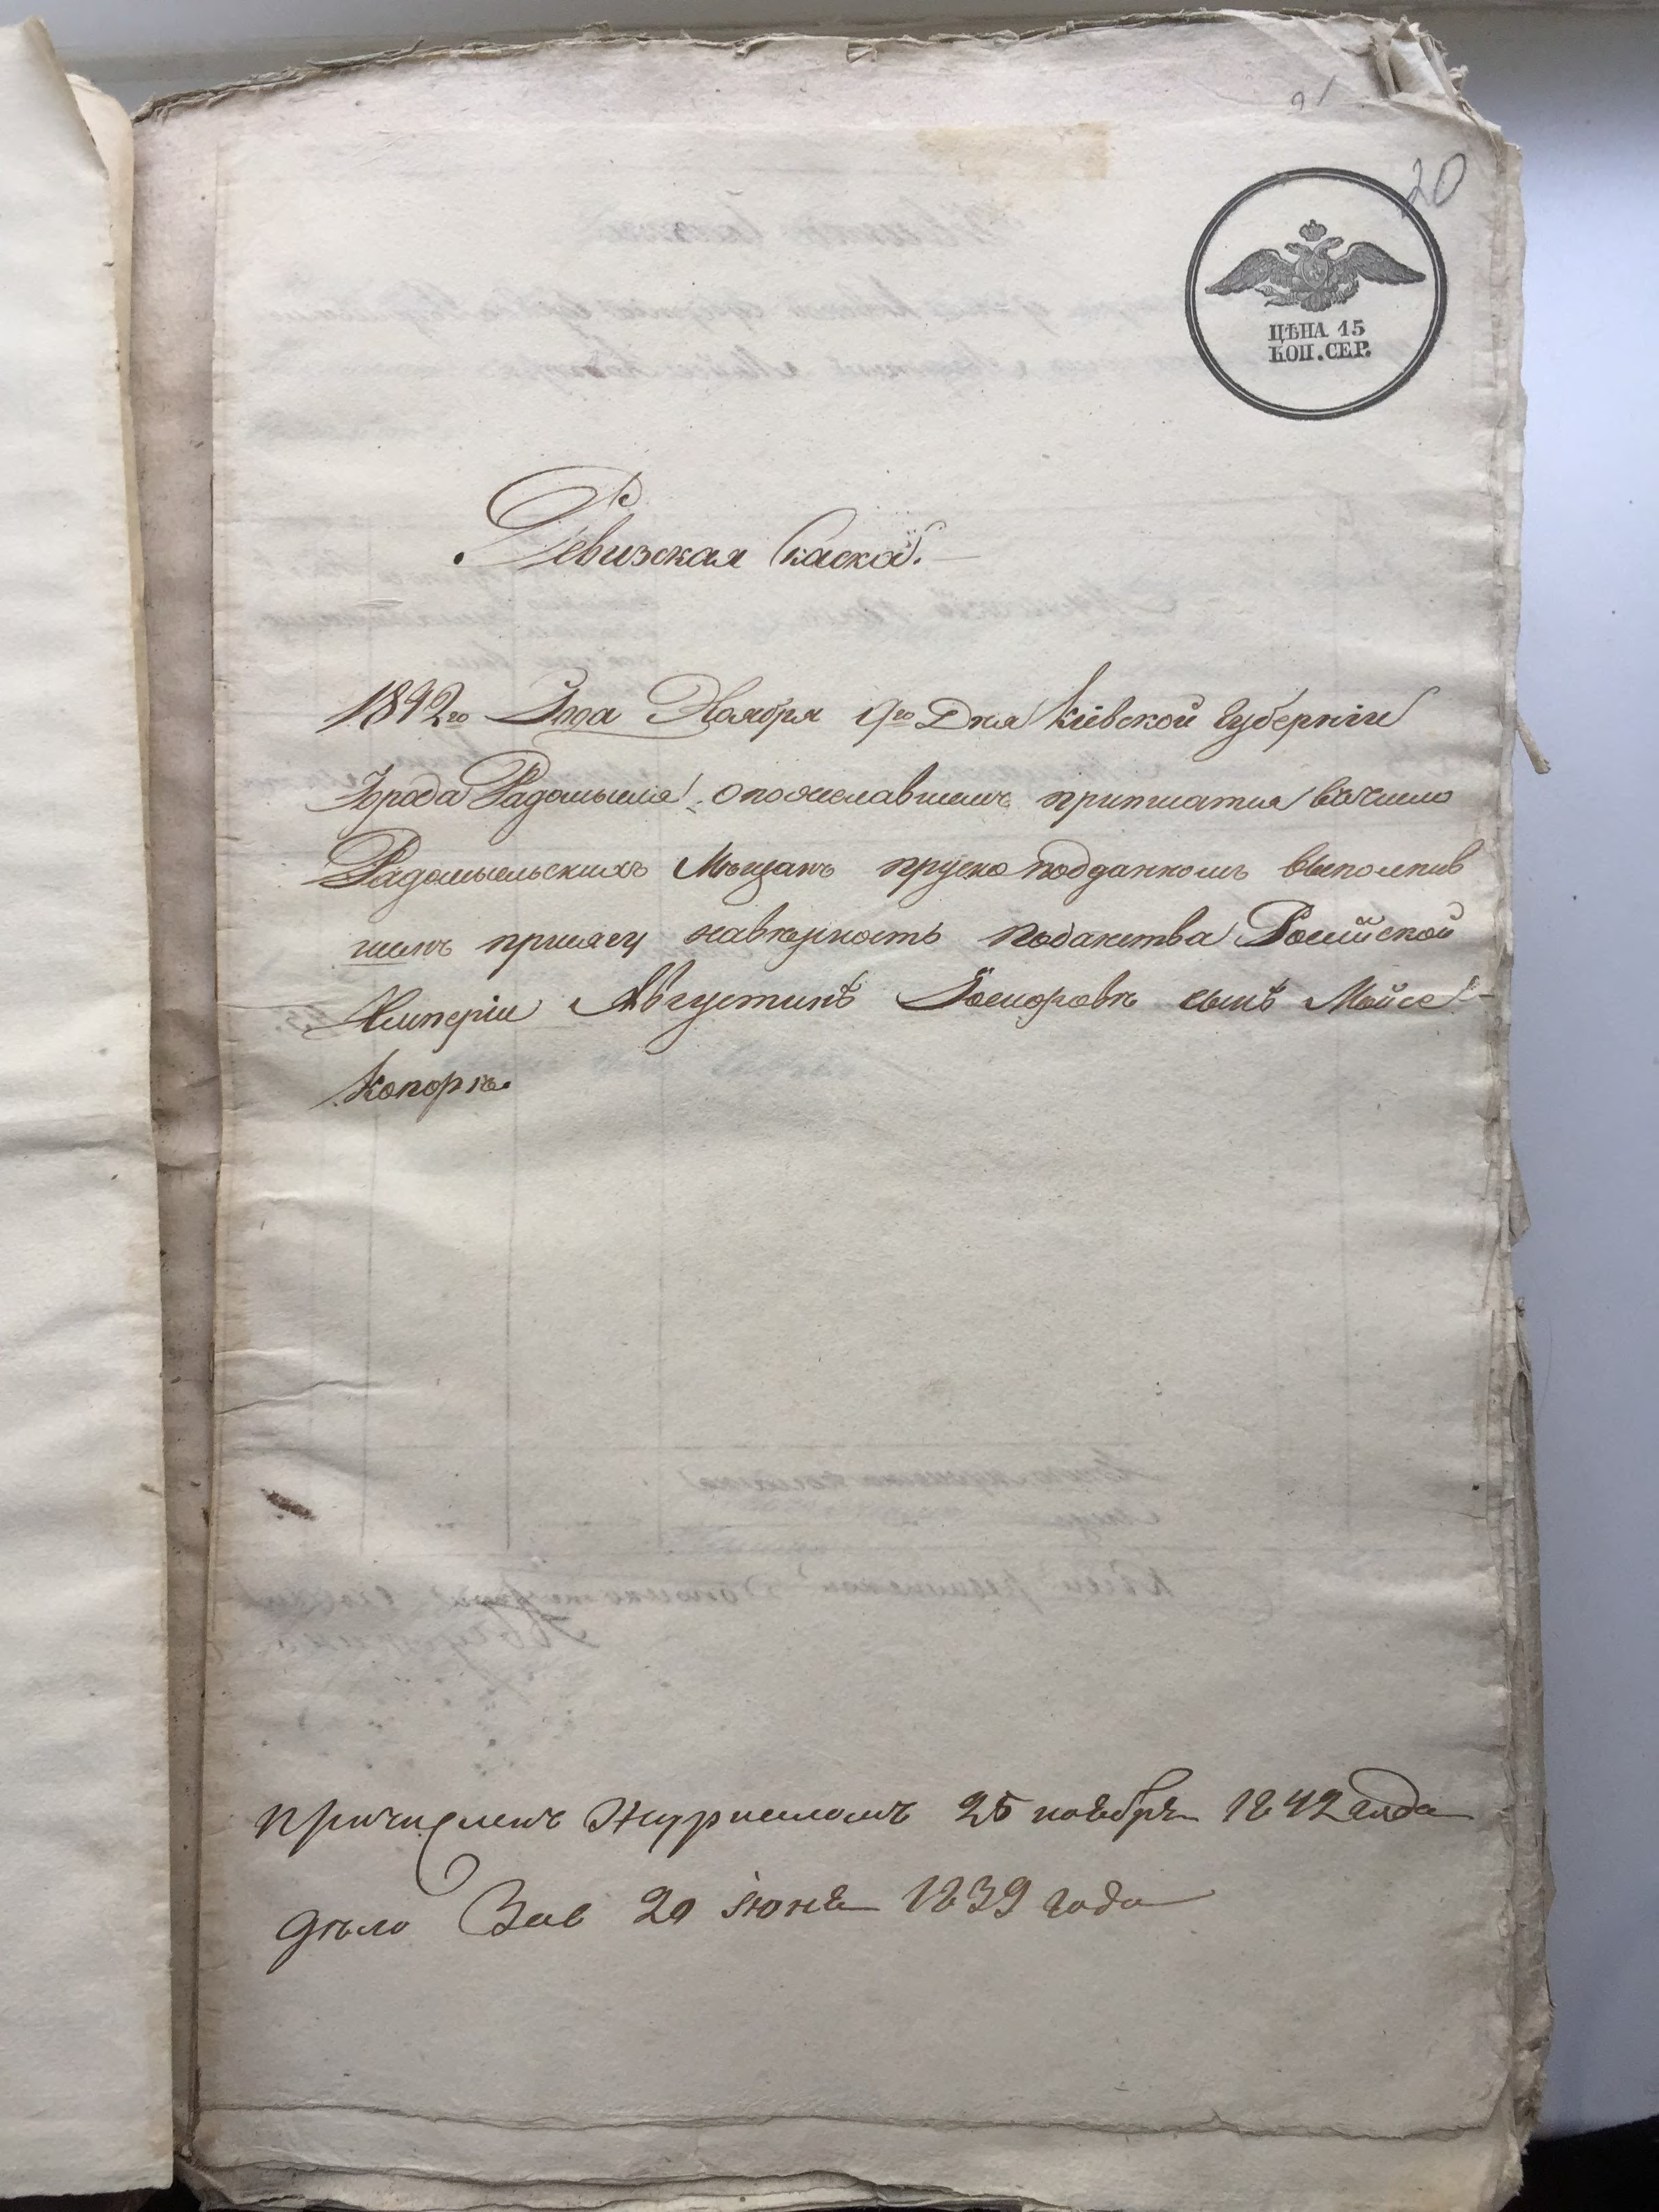 20
ЦѢНА 15
КОП. СЕР.
Ревизская Скаска.
1842го Года Ноября 9го Дня Кіевской Губерніи
Города Радомысля о пожелавшемъ припискатия въ число
Радомысльскихъ Мѣщанъ пруско подданномъ выполнив
шемъ присягу навѣрность подданства Росийской
Имперіи Августинѣ
Копоркѣ.
причисленъ Журналомъ 25 ноября 1842 года
дѣло Зав 20 іюня 1839 года